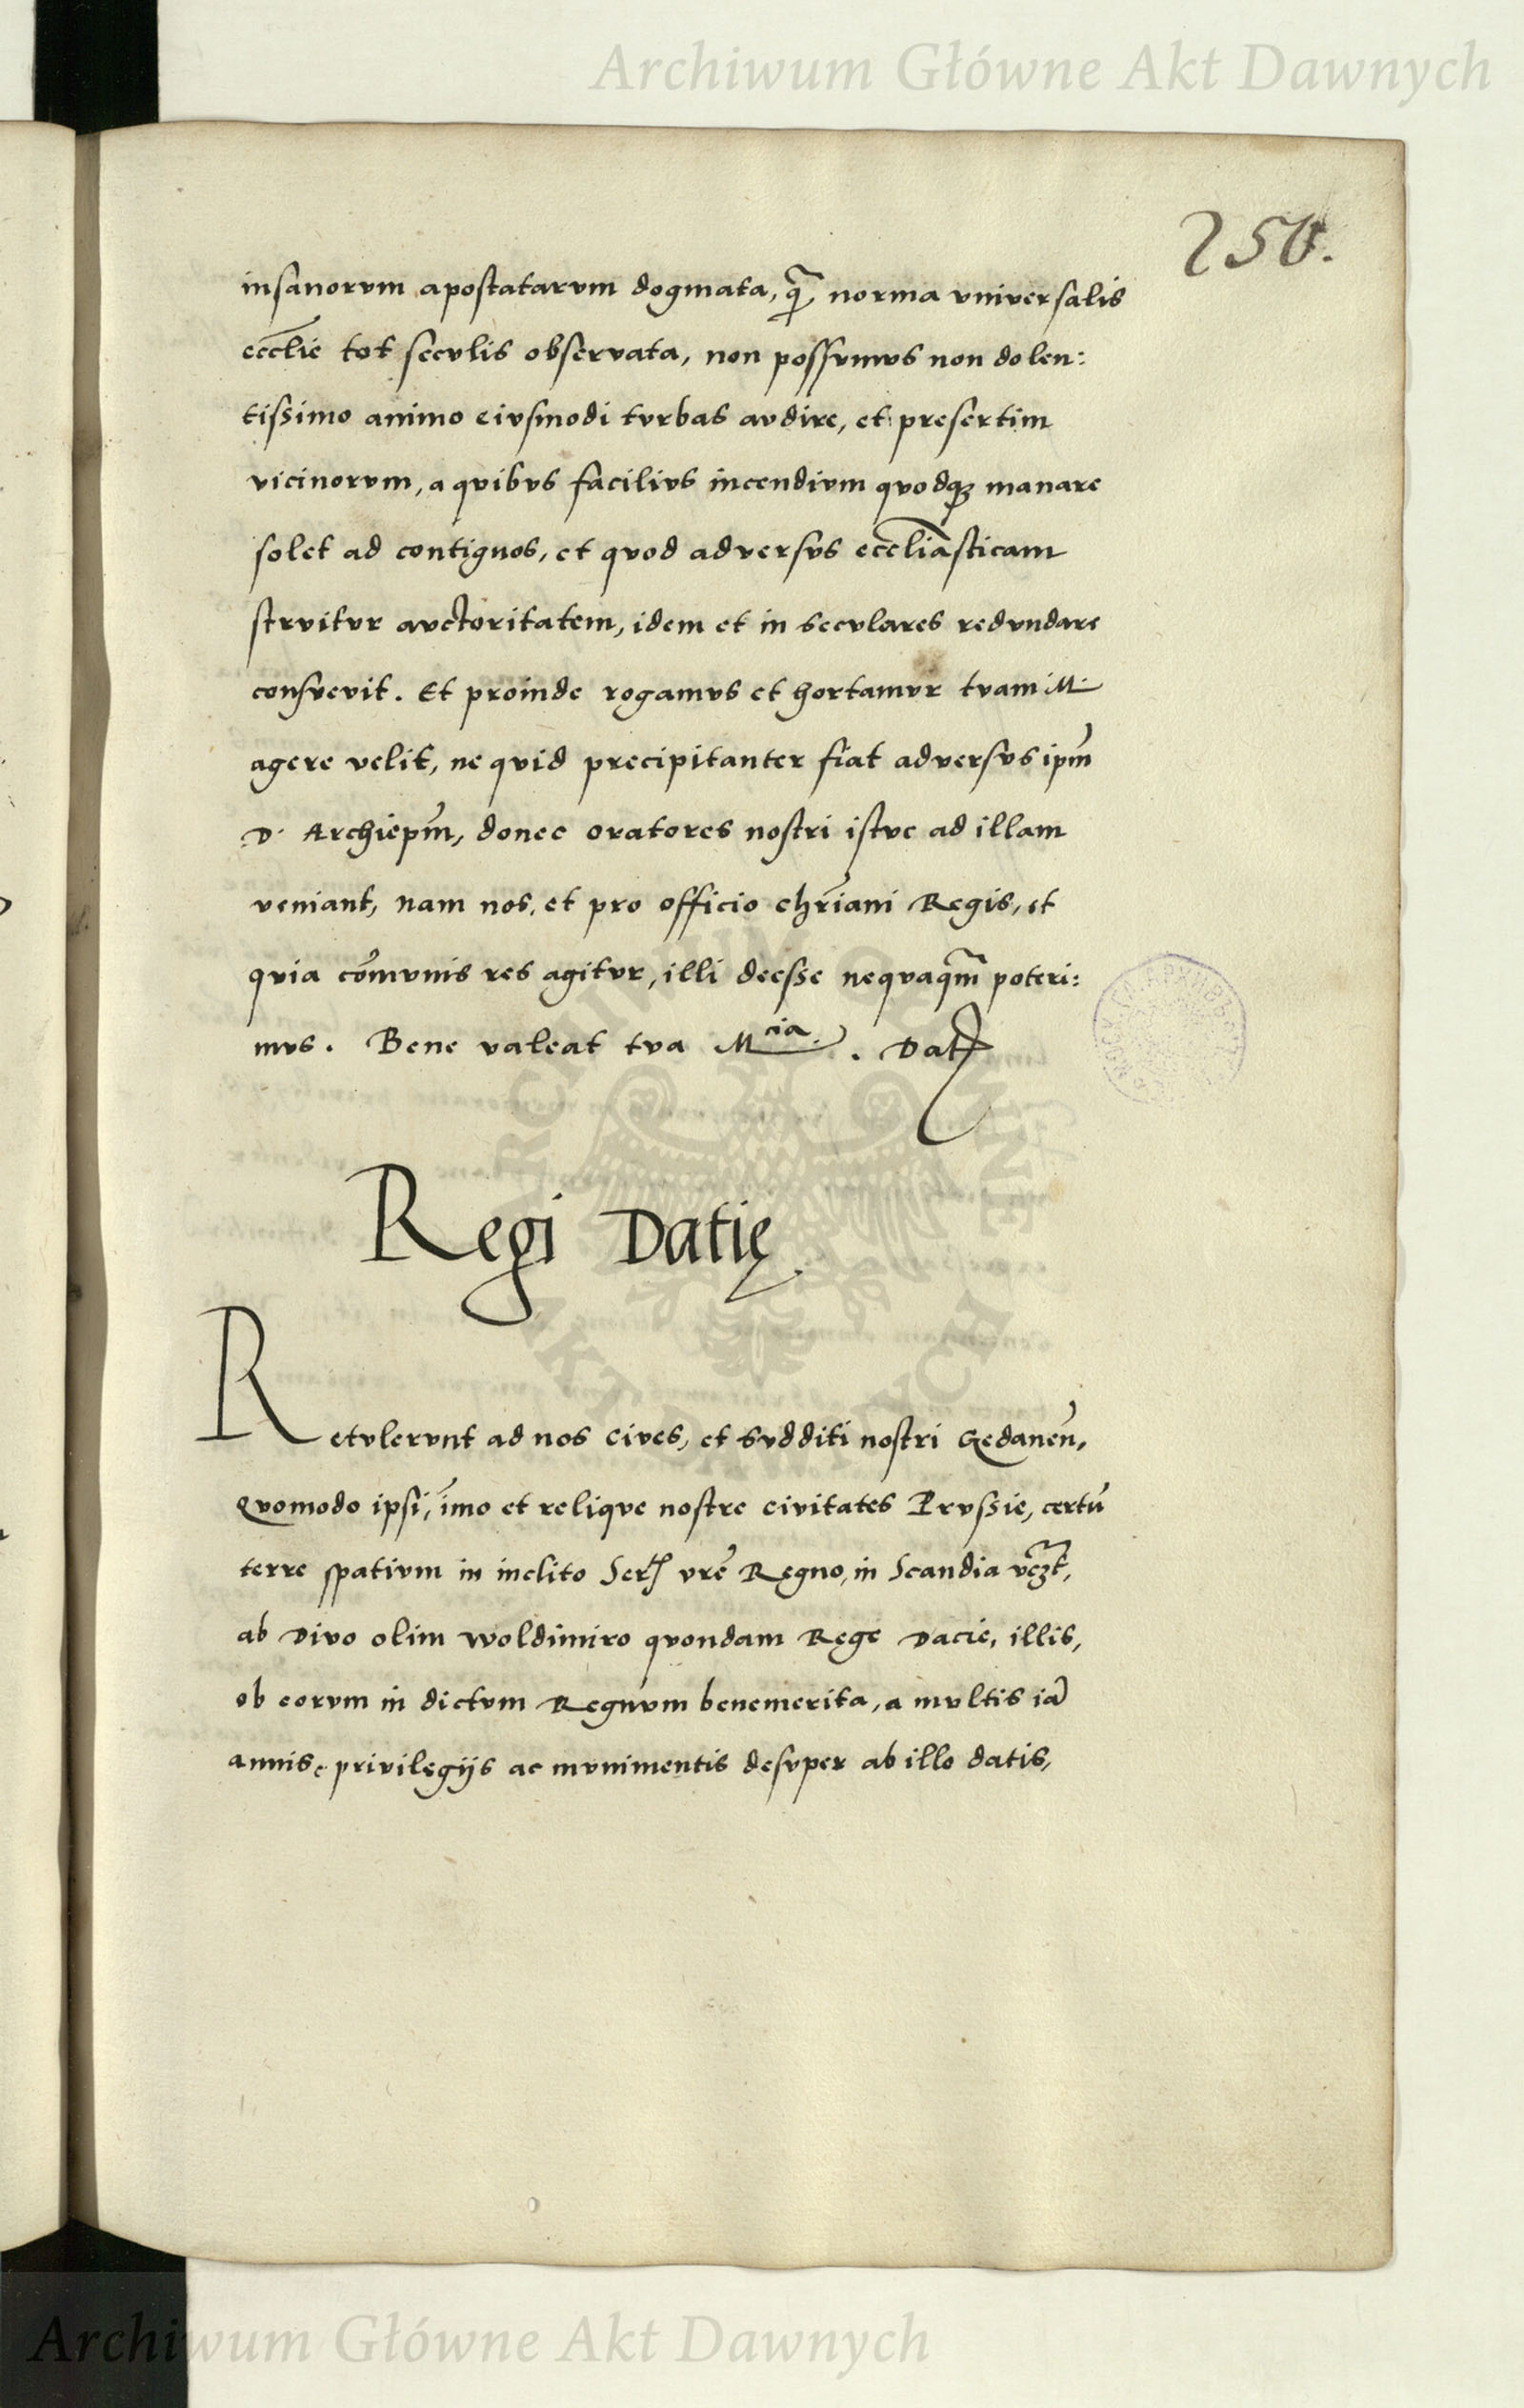 Archiwum Główne Akt Dawnych
250.
insanorum apostatarum dogmata, q̃ norma universalis
eccl̃ie tot seculis observata, non possumus non dolen:
tissimo animo eiusmodi turbas audire, et presertim
vicinorum, a quibus facilius incendium quodq3 manare
solet ad contiguos, et quod adversus eccl̃iasticam
struitur auctoritatem, idem et in seculares redundare
consuevit. Et proinde rogamus et hortamur tuam M.
agere velit, ne quid precipitanter fiat adversus ip̃m
D. Archiep̃m, donec oratores nostri istuc ad illam
veniant, nam nos, et pro officio chr̃iani Regis, et
quia cõmunis res agitur, illi deesse nequaq̃m poteri:
mus. Bene valeat tua Mcia. Dat
Regi Datię
Retulerunt ad nos cives, et subditi nostri Gedaneñ,
Quomodo ipsi, imo et relique nostre civitates Prussie, certũ
terre spatium in inclito Ser vrẽ Regno, in Scandia vcz̃t,
ab Divo olim Woldimiro quondam Rege Dacie, illis,
ob eorum in dictum Regnum benemerita, a multis iã
annis, privilegijs ac munimentis desuper ab illo datis,
ARCHIWUM GŁÓWNE AKT DAWNYCH
Archiwum Główne Akt Dawnych